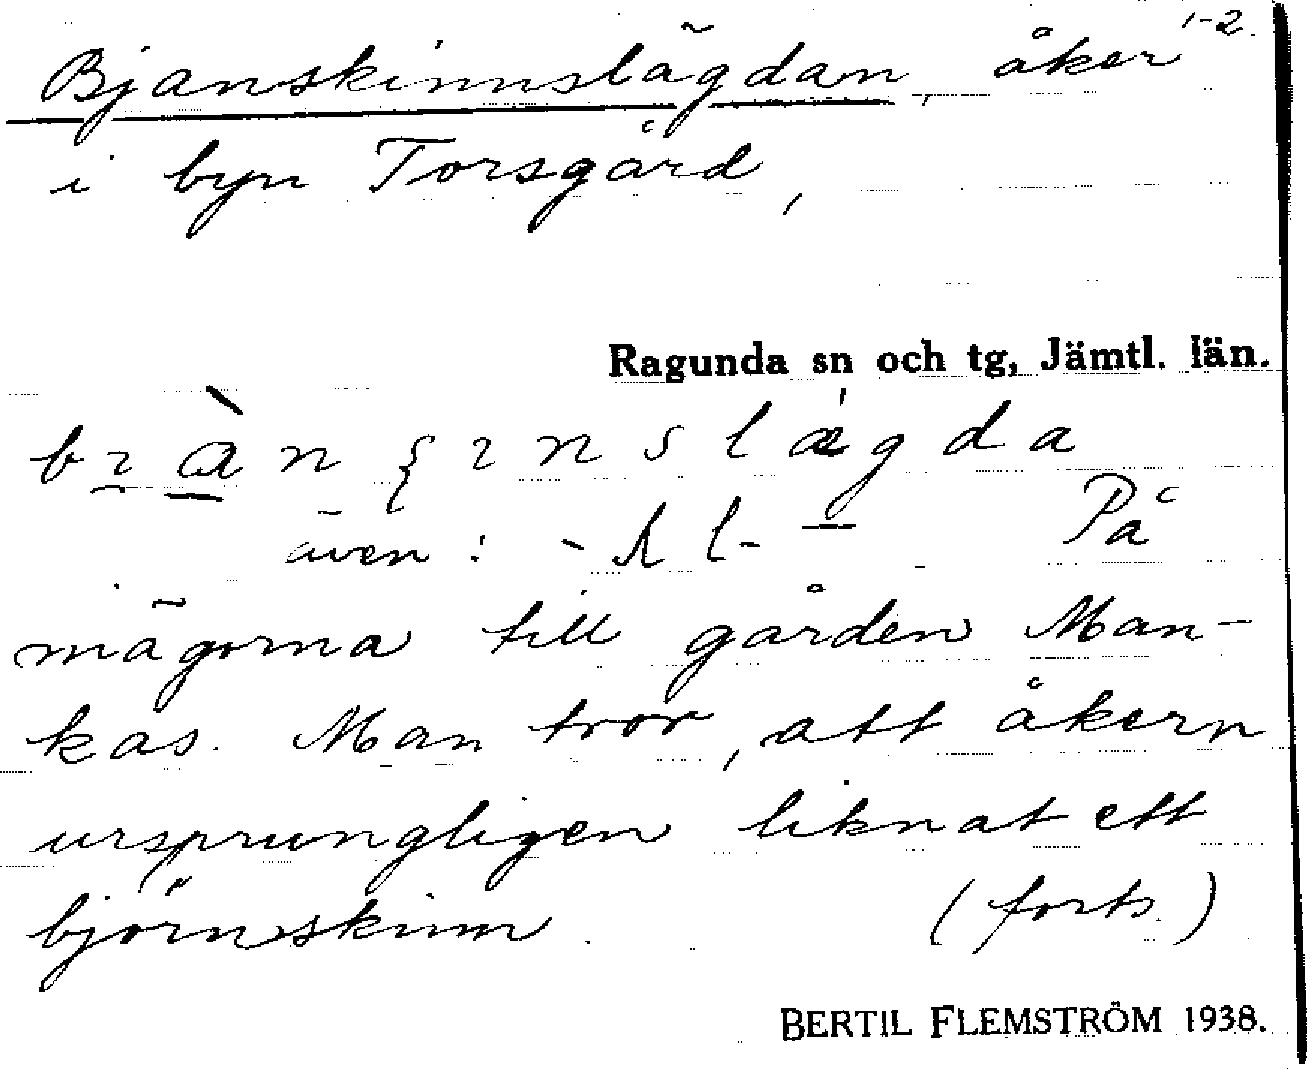 Bjanskinnslägdan, åker 1-2.
i byn Torsgård,
Ragunda sn och tg, Jämtl. län.
även :
På
mägorna till gården Man-
kas. Man tror, att åkern
ursprungligen liknat ett
björnskinn. (forts.)
BERTIL FLEMSTRÖM 1938.